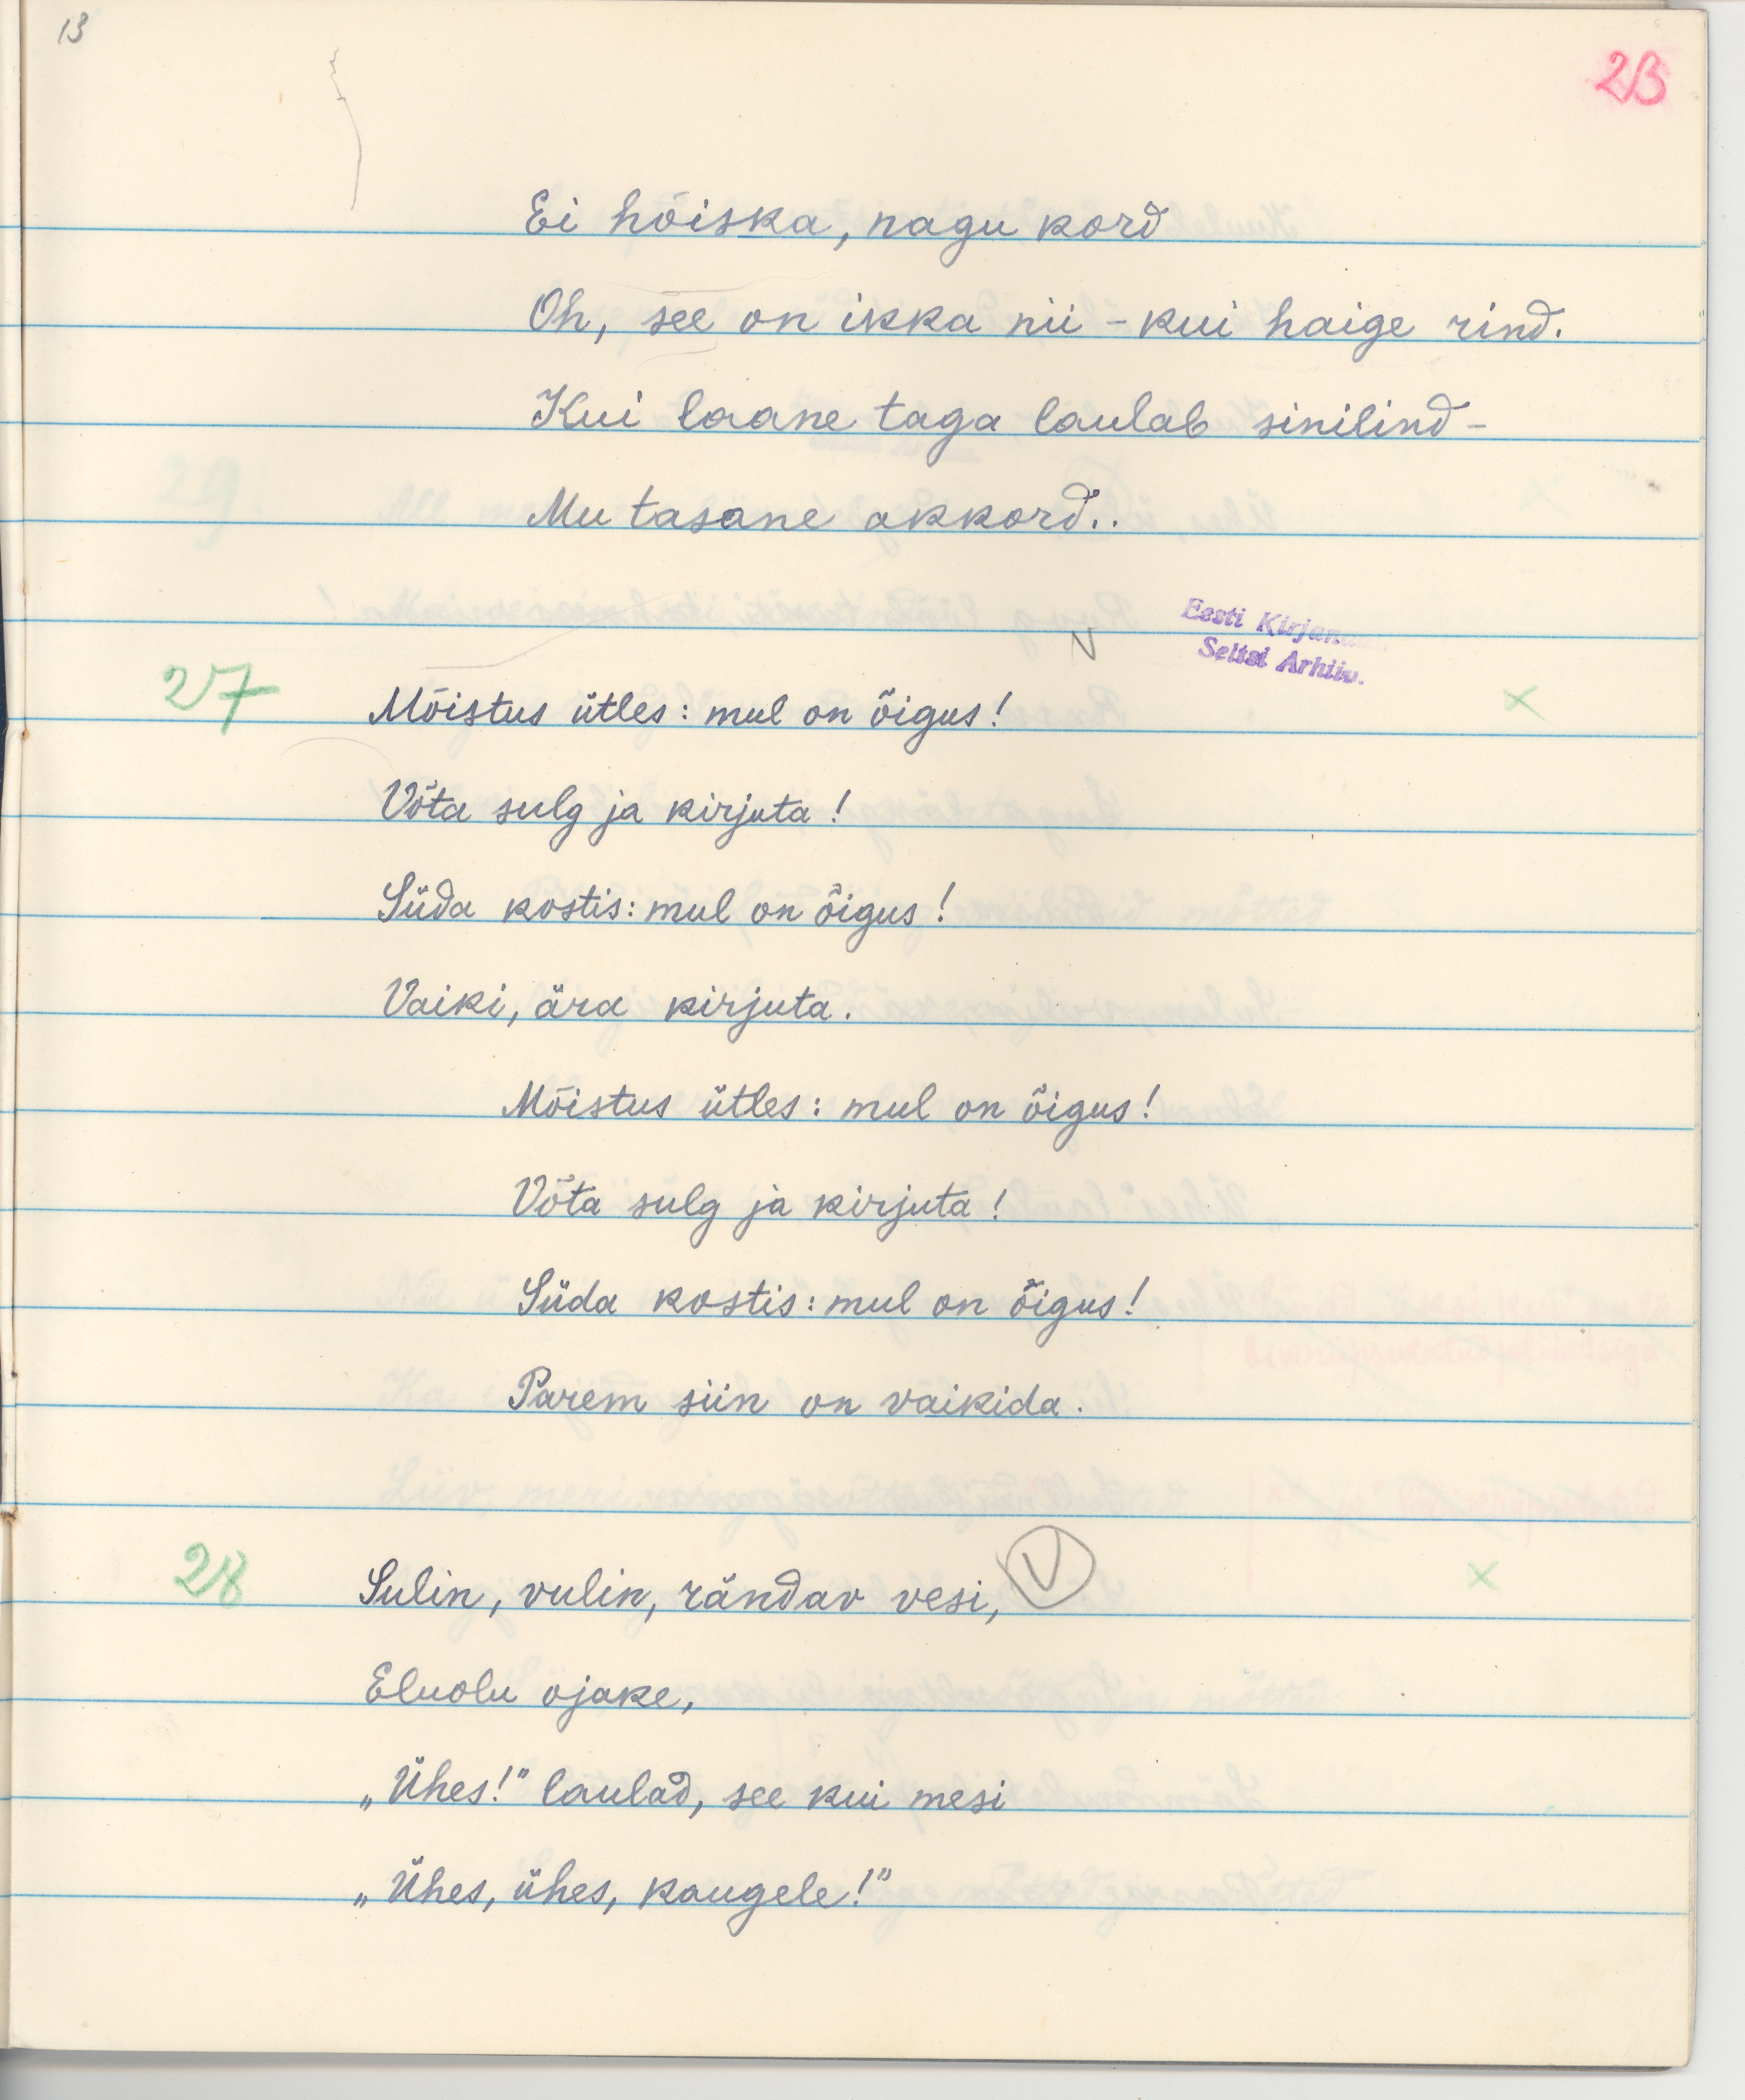 13
23
Ei hõiska, nagu kord
Oh, see on ikka nii - kui haige rind.
Kui laane taga laulab sinilind -
Mu tasane akkord..
Eesti
Seltsi Arhiiv.
27
Mõistus ütles: mul on õigus!
Võta sulg ja kirjuta!
Süda kostis: mul on õigus!
Vaiki, ära kirjuta.
Mõistus ütles: mul on õigus!
Võta sulg ja kirjuta!
Süda kostis: mul on õigus!
Parem siin on vaikida.
28
Sulin, vulin, rändav vesi,
Eluolu ojake,
„Ühes!" laulad, see kui mesi
„Ühes, ühes, kaugele!"